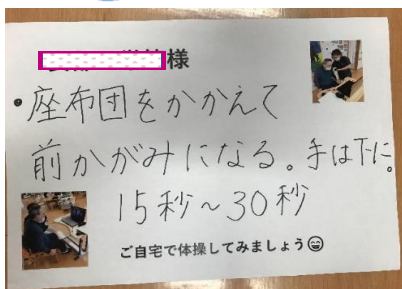 様
・座布団をかかえて
前かがみになる。手は下に。
15秒～30秒
ご自宅で体操してみましょう😄